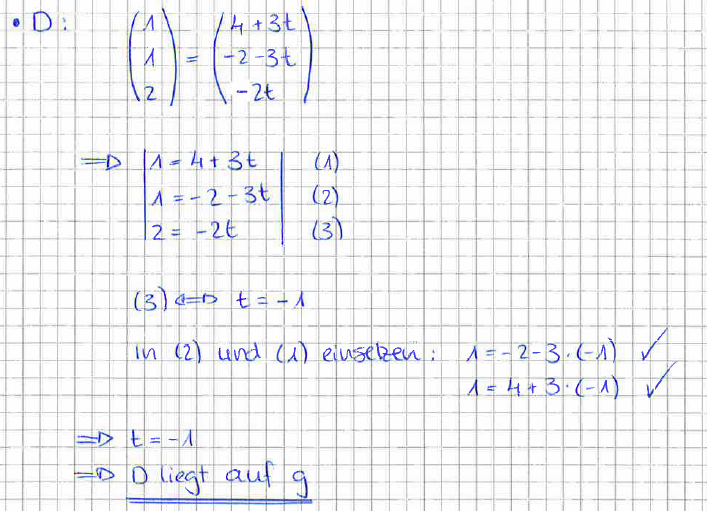 • D: (1 1 2) = (4+3t -2-3t -2t)
=> | 1 = 4+3t | (1)
| 1 = -2-3t | (2)
| 2 = -2t | (3)
(3) <=> t = -1
in (2) und (1) einsetzen: 1 = -2-3·(-1) ✓
1 = 4+3·(-1) ✓
=> t = -1
=> D liegt auf g